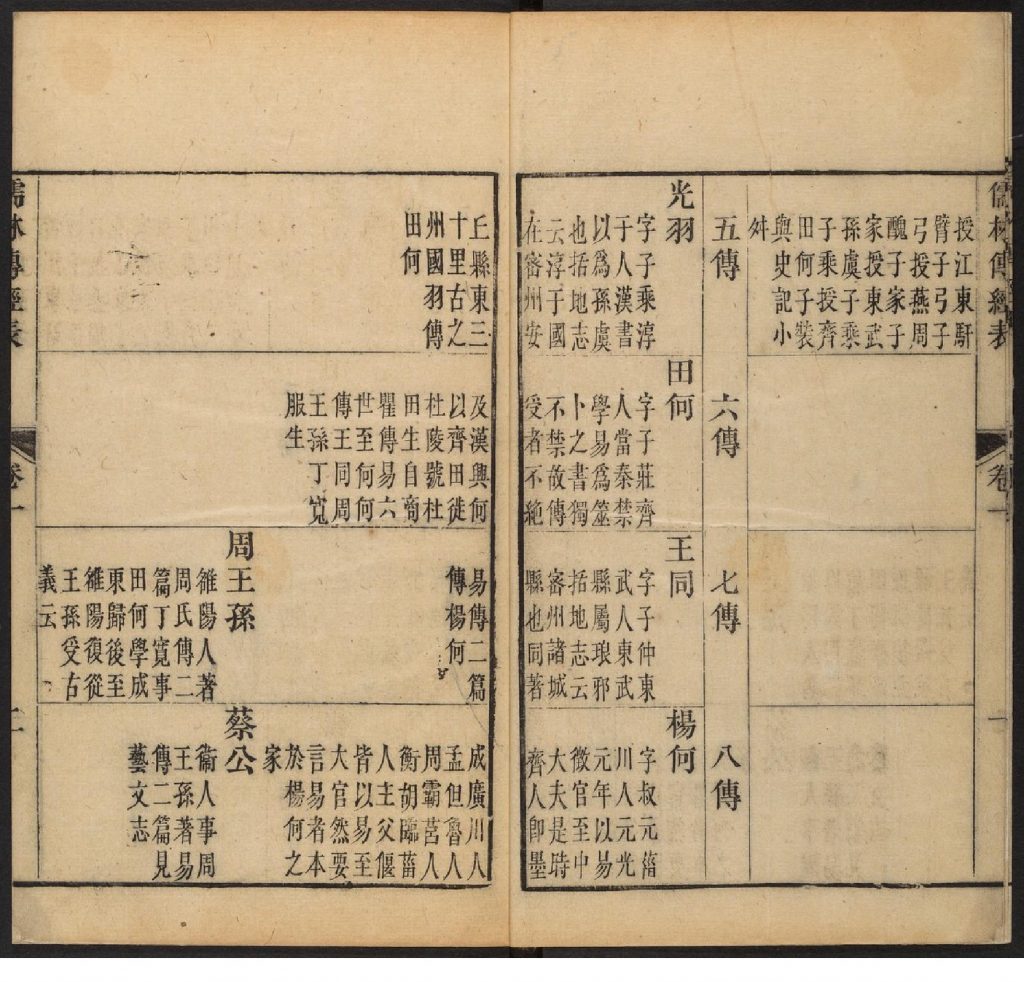 儒林傳經表
卷一
一
授江東馯
臂子弓子
弓授燕周
醜子家子
家授東武
孫虞子乘
子乘授齊
田何子裝
與史記小
舛
五傳
六傳
七傳
八傳
光羽
字子乘淳
于人漢書
以爲孫虞
也括地志
云淳于國
在審州安
田何
字子莊齊
人當秦禁
學易爲筮
卜之書獨
不禁故傳
受者不絶
王同
字子仲東
武人東武
縣屬琅邪
括地志云
審州諸城
縣也同著
楊何
字叔元菑
川人元光
元年以易
徵官至中
大夫是時
齊人即墨
丘縣東三
十里古之
州國羽傳
田何
及漢興何
以齊田徙
杜陵號杜
田生自商
瞿傳易六
世至何何
傳王同周
王孫丁寬
服生
易傳二篇
傳楊何
成廣川人
孟但魯人
周霸莒人
衡胡臨菑
人主父偃
皆以易至
大官然要
言易者本
於楊何之
家
周王孫
雒陽人著
周氏傳二
篇丁寬事
田何學成
東歸後至
雒陽復從
王孫受古
義云
蔡公
衞人事周
王孫著易
傳二篇見
藝文志
儒林傳經表
卷一
二